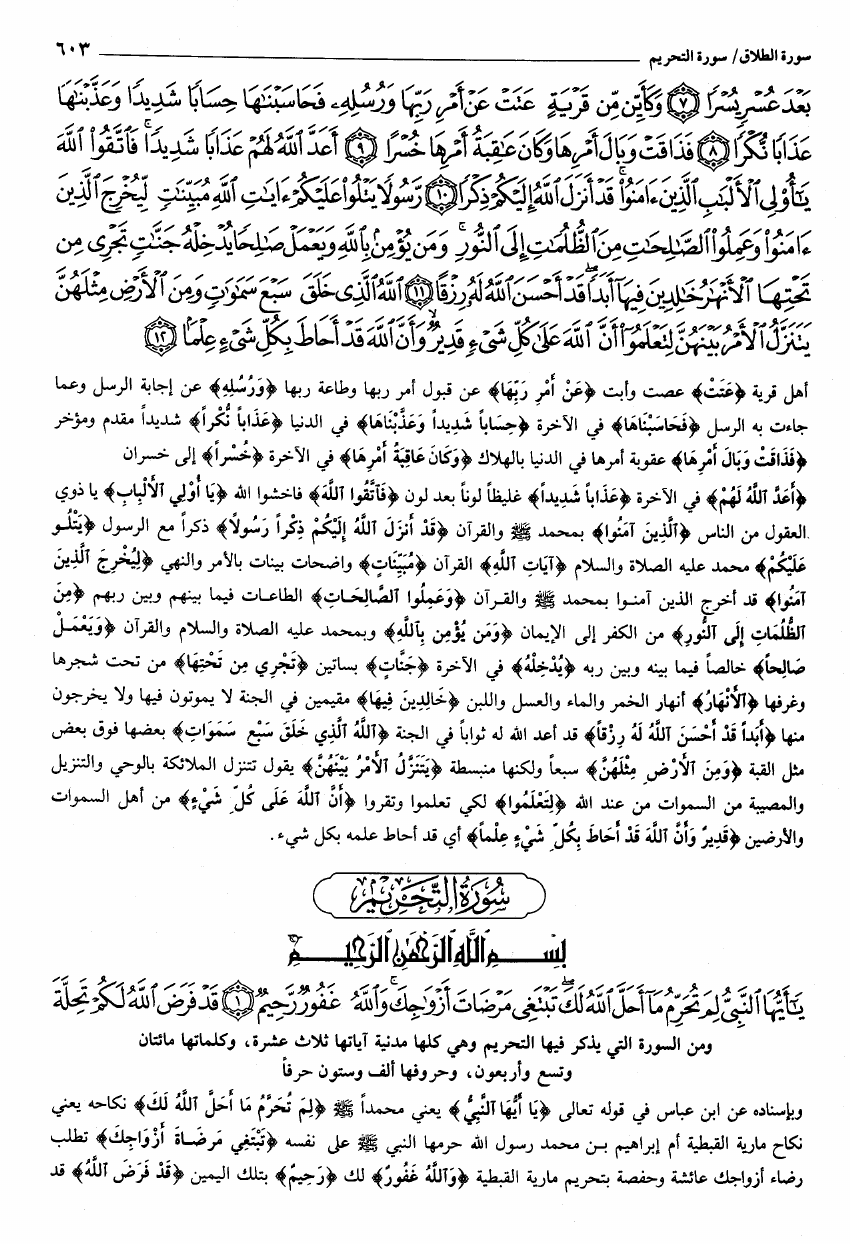 سورة الطلاق/ سورة التحريم ٦٠٣
بَعْدَ عُسْرٍ يُسْرًا ٧ وَكَأَيِّن مِّن قَرْيَةٍ عَتَتْ عَنْ أَمْرِ رَبِّهَا وَرُسُلِهِۦ فَحَاسَبْنَٰهَا حِسَابًا شَدِيدًا وَعَذَّبْنَٰهَا
عَذَابًا نُّكْرًا ٨ فَذَاقَتْ وَبَالَ أَمْرِهَا وَكَانَ عَٰقِبَةُ أَمْرِهَا خُسْرًا ٩ أَعَدَّ ٱللَّهُ لَهُمْ عَذَابًا شَدِيدًا ۖ فَٱتَّقُوا۟ ٱللَّهَ
يَٰٓأُو۟لِى ٱلْأَلْبَٰبِ ٱلَّذِينَ ءَامَنُوا۟ ۚ قَدْ أَنزَلَ ٱللَّهُ إِلَيْكُمْ ذِكْرًا ١٠ رَّسُولًا يَتْلُوا۟ عَلَيْكُمْ ءَايَٰتِ ٱللَّهِ مُبَيِّنَٰتٍ لِّيُخْرِجَ ٱلَّذِينَ
ءَامَنُوا۟ وَعَمِلُوا۟ ٱلصَّٰلِحَٰتِ مِنَ ٱلظُّلُمَٰتِ إِلَى ٱلنُّورِ ۚ وَمَن يُؤْمِنۢ بِٱللَّهِ وَيَعْمَلْ صَٰلِحًا يُدْخِلْهُ جَنَّٰتٍ تَجْرِى مِن
تَحْتِهَا ٱلْأَنْهَٰرُ خَٰلِدِينَ فِيهَآ أَبَدًا ۖ قَدْ أَحْسَنَ ٱللَّهُ لَهُۥ رِزْقًا ١١ ٱللَّهُ ٱلَّذِى خَلَقَ سَبْعَ سَمَٰوَٰتٍ وَمِنَ ٱلْأَرْضِ مِثْلَهُنَّ
يَتَنَزَّلُ ٱلْأَمْرُ بَيْنَهُنَّ لِتَعْلَمُوٓا۟ أَنَّ ٱللَّهَ عَلَىٰ كُلِّ شَىْءٍ قَدِيرٌ وَأَنَّ ٱللَّهَ قَدْ أَحَاطَ بِكُلِّ شَىْءٍ عِلْمًۢا ١٢
أهل قرية ﴿عَتَتْ﴾ عصت وأبت ﴿عَنْ أَمْرِ رَبِّهَا﴾ عن قبول أمر ربها وطاعة ربها ﴿وَرُسُلِهِ﴾ عن إجابة الرسل وعما
جاءت به الرسل ﴿فَحَاسَبْنَاهَا﴾ في الآخرة ﴿حِسَاباً شَدِيداً وَعَذَّبْنَاهَا﴾ في الدنيا ﴿عَذَاباً نُّكْراً﴾ شديداً مقدم ومؤخر
﴿فَذَاقَتْ وَبَالَ أَمْرِهَا﴾ عقوبة أمرها في الدنيا بالهلاك ﴿وَكَانَ عَاقِبَةُ أَمْرِهَا﴾ في الآخرة ﴿خُسْراً﴾ إلى خسران
﴿أَعَدَّ ٱللَّهُ لَهُمْ﴾ في الآخرة ﴿عَذَاباً شَدِيداً﴾ غليظاً لوناً بعد لون ﴿فَٱتَّقُوا ٱللَّهَ﴾ فاخشوا الله ﴿يَا أُوْلِي ٱلْأَلْبَابِ﴾ يا ذوي
العقول من الناس ﴿ٱلَّذِينَ آمَنُوا﴾ بمحمد ﷺ والقرآن ﴿قَدْ أَنزَلَ ٱللَّهُ إِلَيْكُمْ ذِكْراً رَسُولاً﴾ ذكراً مع الرسول ﴿يَتْلُو
عَلَيْكُمْ﴾ محمد عليه الصلاة والسلام ﴿آيَاتِ ٱللَّهِ﴾ القرآن ﴿مُبَيِّنَاتٍ﴾ واضحات بينات بالأمر والنهي ﴿لِيُخْرِجَ ٱلَّذِينَ
آمَنُوا﴾ قد أخرج الذين آمنوا بمحمد ﷺ والقرآن ﴿وَعَمِلُوا ٱلصَّالِحَاتِ﴾ الطاعات فيما بينهم وبين ربهم ﴿مِنَ
ٱلظُّلُمَاتِ إِلَى ٱلنُّورِ﴾ من الكفر إلى الإيمان ﴿وَمَن يُؤْمِن بِٱللَّهِ﴾ وبمحمد عليه الصلاة والسلام والقرآن ﴿وَيَعْمَلْ
صَالِحاً﴾ خالصاً فيما بينه وبين ربه ﴿يُدْخِلْهُ﴾ في الآخرة ﴿جَنَّاتٍ﴾ بساتين ﴿تَجْرِي مِن تَحْتِهَا﴾ من تحت شجرها
وغرفها ﴿ٱلْأَنْهَارُ﴾ أنهار الخمر والماء والعسل واللبن ﴿خَالِدِينَ فِيهَا﴾ مقيمين في الجنة لا يموتون فيها ولا يخرجون
منها ﴿أَبَداً قَدْ أَحْسَنَ ٱللَّهُ لَهُ رِزْقاً﴾ قد أعد الله له ثواباً في الجنة ﴿ٱللَّهُ ٱلَّذِي خَلَقَ سَبْعَ سَمَوَاتٍ﴾ بعضها فوق بعض
مثل القبة ﴿وَمِنَ ٱلْأَرْضِ مِثْلَهُنَّ﴾ سبعاً ولكنها منبسطة ﴿يَتَنَزَّلُ ٱلْأَمْرُ بَيْنَهُنَّ﴾ يقول تتنزل الملائكة بالوحي والتنزيل
والمصيبة من السموات من عند الله ﴿لِتَعْلَمُوا﴾ لكي تعلموا وتقروا ﴿أَنَّ ٱللَّهَ عَلَى كُلِّ شَيْءٍ﴾ من أهل السموات
والأرضين ﴿قَدِيرٌ وَأَنَّ ٱللَّهَ قَدْ أَحَاطَ بِكُلِّ شَيْءٍ عِلْماً﴾ أي قد أحاط علمه بكل شيء.
سُورَةُ التَّحْرِيم
بِسْمِ ٱللَّهِ ٱلرَّحْمَٰنِ ٱلرَّحِيمِ
يَٰٓأَيُّهَا ٱلنَّبِىُّ لِمَ تُحَرِّمُ مَآ أَحَلَّ ٱللَّهُ لَكَ ۖ تَبْتَغِى مَرْضَاتَ أَزْوَٰجِكَ ۚ وَٱللَّهُ غَفُورٌ رَّحِيمٌ ١ قَدْ فَرَضَ ٱللَّهُ لَكُمْ تَحِلَّةَ
ومن السورة التي يذكر فيها التحريم وهي كلها مدنية آياتها ثلاث عشرة، وكلماتها مائتان
وتسع وأربعون، وحروفها ألف وستون حرفاً
وبإسناده عن ابن عباس في قوله تعالى ﴿يَا أَيُّهَا ٱلنَّبِيُّ﴾ يعني محمداً ﷺ ﴿لِمَ تُحَرِّمُ مَا أَحَلَّ ٱللَّهُ لَكَ﴾ نكاحه يعني
نكاح مارية القبطية أم إبراهيم بن محمد رسول الله حرمها النبي ﷺ على نفسه ﴿تَبْتَغِي مَرْضَاةَ أَزْوَاجِكَ﴾ تطلب
رضاء أزواجك عائشة وحفصة بتحريم مارية القبطية ﴿وَٱللَّهُ غَفُورٌ﴾ لك ﴿رَحِيمٌ﴾ بتلك اليمين ﴿قَدْ فَرَضَ ٱللَّهُ﴾ قد